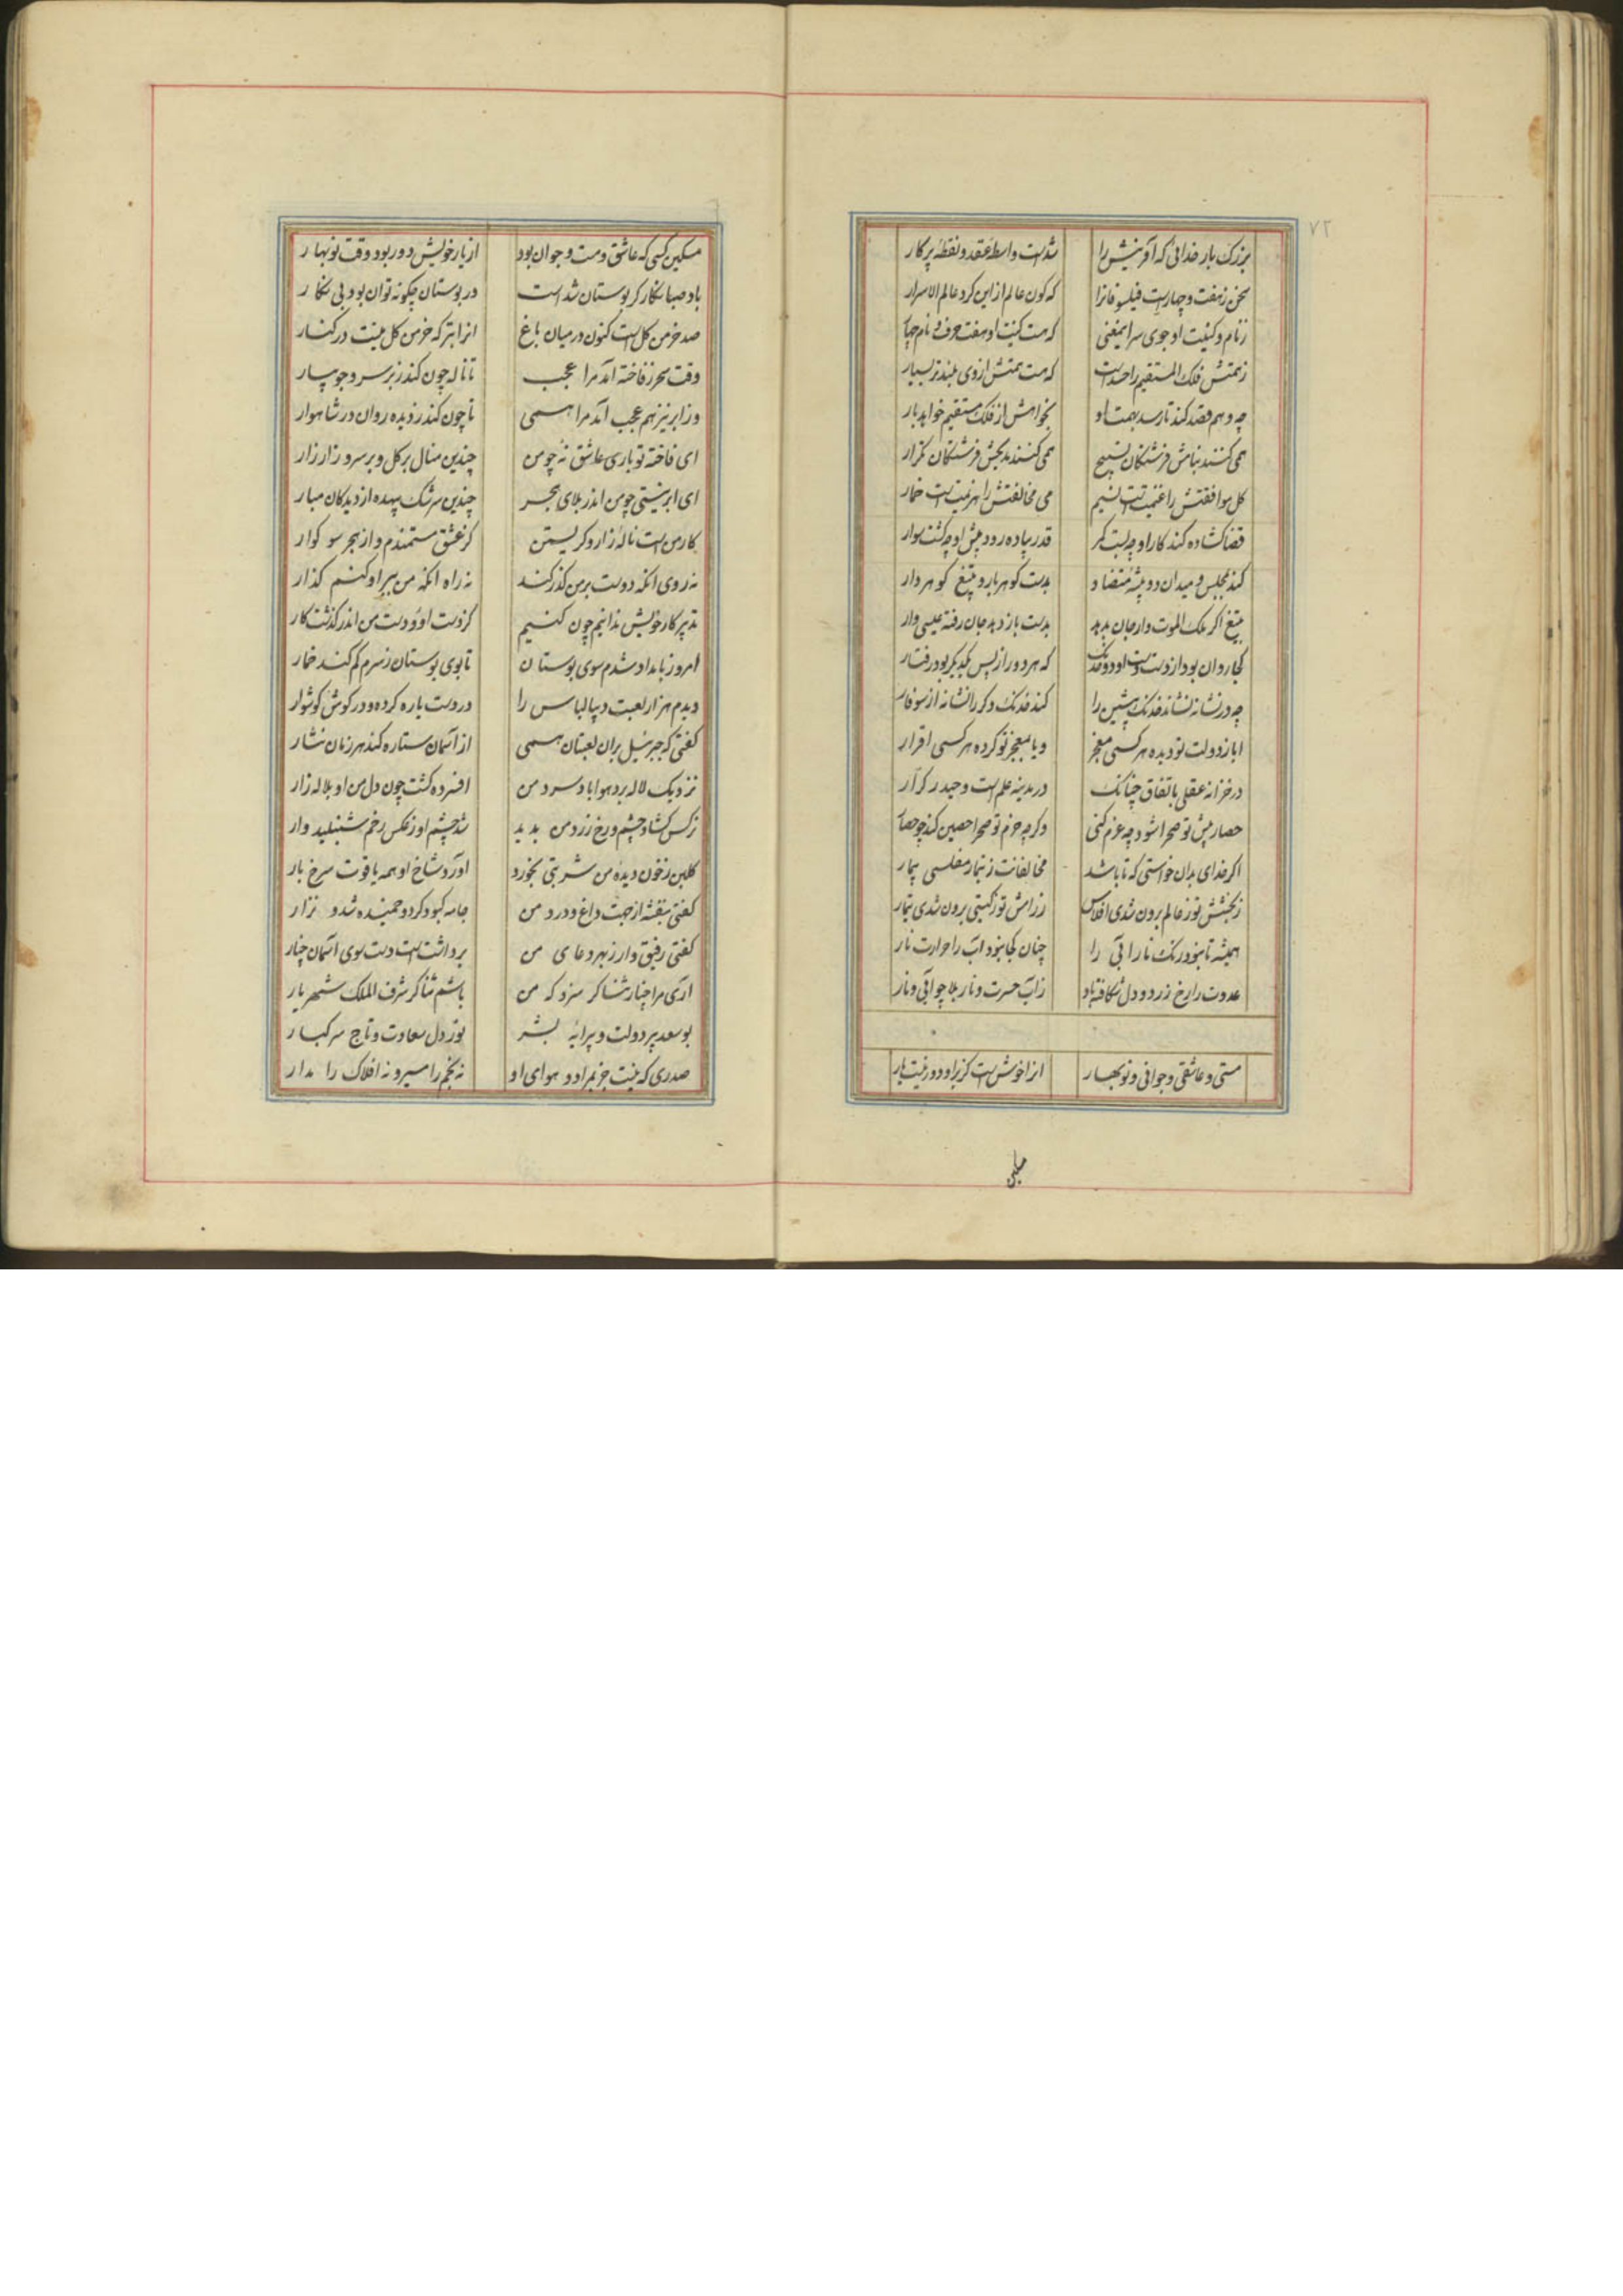 ۷۲
بزرک بار خدائی که آفرینیش را شدست واسطهٔ عقد و نقطهٔ پرکار
سخن زهفت و چهارست فیلسوفانرا که کون عالم از این کرد عالم الاسرار
زنام و کنیت او جوی سر این معنی که هست کنیت او هفت حرف و نام چهار
زهمتش فلک المستقیم را حدست که هست همتش از وی بلندتر بسیار
چه وهم قصد کند تا رسد بهمت او بخواهش از فلک مستقیم خواهد بار
همی کنند بنامش فرشتکان تسبیح همی کنند بمدحش فرشتکان تکرار
کل موافقتش را غنیمت است نسیم می مخالفتش را هزیمت است خمار
قضا کشاده کند کار او چه بست کمر قدر پیاده رود پیش او چه کشت سوار
کند بمجلس و میدان دو پیشهٔ متضاد بدست کوهر بار و بتیغ کوهر دار
بتیغ اکر ملک الموت وار جان بد بدست باز دهد جان رفته عیسی وار
کجا روان بود از دست او دو خدنک که هر دو را ز پس یکدیکر بود رفتار
چه در نشانه نشاند خدنک پیشین را کند خدنک دکر را نشانه از سوفار
ایا ز دولت تو دیده هر کسی معجز و یا بمعجز تو کرده هر کسی اقرار
در خزانهٔ عقلی باتفاق چنانک در مدینه علمست و حیدر کرار
حصار پیش تو صحرا شود چه عزم کنی وکر چه حزم تو صحرا حصین کند چو حصار
اکر خدای بدان خواستی که تا باشد مخالفانت ز تیمار مفلسی بیمار
ز بخشش تو ز عالم برون شدی افلاس ز رامش تو ز کیتی برون شدی تیمار
همیشه تا نبود رنک نار آبی را چنان کجا نبود آب را حرارت نار
عدوت را رخ زرد و دل شکافته باد ز آب حسرت و نار بلا چو آبی و نار
مستی و عاشقی و جوانی و نوبهار انرا خوش است کز بر او دور نیست یار
مسکین
مسکین کسی که عاشق و مست و جوان بود از یار خویش دور بود وقت نوبهار
باد صبا نکارکر بوستان شدست در بوستان چکونه توان بود بی نکار
صد خرمن کل است کنون در میان باغ انرا بتر که خرمن کل نیست در کنار
وقت سحر ز فاخته آمد مرا عجب تا ناله چون کند ز بر سرو جویبار
وز ابر نیز هم عجب آمد مرا همی تا چون کند ز دیده روان در شاهوار
ای فاخته تو باری عاشق نهٔ چو من چندین منال بر کل و بر سرو زار زار
ای ابر نیستی چو من اندر بلای هجر چندین سرشک بیهده از دیدکان مبار
کار من است نالهٔ زار و کریستن کز عشق مستمندم و از هجر سوکوار
نه روی انکه دوست بر من کذر کند نه راه انکه من ببر او کنم کذار
تدبیر کار خویش ندانیم چون کنیم کز دست او و دست من اندر کذشت کار
امروز بامداد شدم سوی بوستان تا بوی بوستان ز سرم کم کند خمار
دیدم هزار لعبت دیبا لباس را در دست یاره کرده و در کوش کوشوار
کفتی که جبرئیل بران لعبتان همی از آسمان ستاره کند هر زمان نثار
نزدیک لاله برد هوا باد سرد من افسرده کشت چون دل من او بلاله زار
نرکس کشاد چشم و رخ زرد من بدید شد چشم او ز عکس رخم شنبلید وار
کلبن ز خون دیدهٔ من شربتی بخورد اورد شاخ او همه یاقوت سرخ بار
کفتی بنفشه از جهت داغ و درد من جامه کبود کرد و خمیده شد و نزار
کفتی رفیق وار ز بهر دعای من برداشت است دست سوی اسمان چنار
آری مرا چنار ثنا کر سزد که من باشم ثناکر شرف الملک شهریار
بوسعد پیر دولت و پیرایهٔ بشر نور دل سعادت و تاج سر کبار
صدری که نیست جز بمراد و هوای او نه نجم را مسیر و نه افلاک را مدار